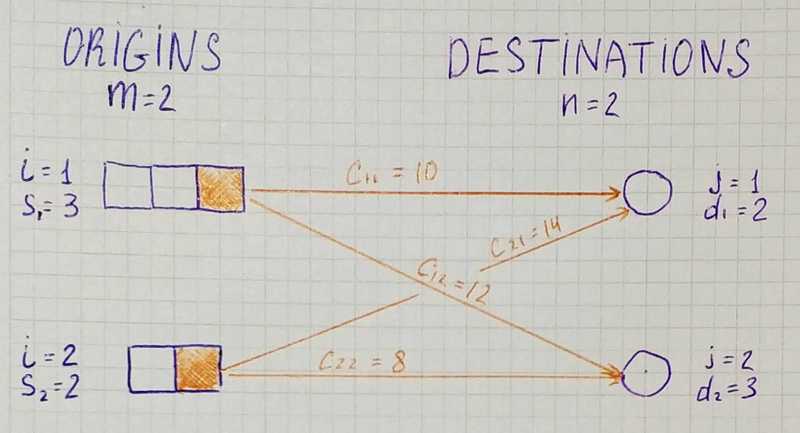 ORIGINS
m=2
DESTINATIONS
n=2
i=1
S₁=3
C₁₁ = 10
j=1
d₁=2
C₂₁=14
C₁₂=12
i=2
S₂=2
C₂₂ = 8
j=2
d₂=3